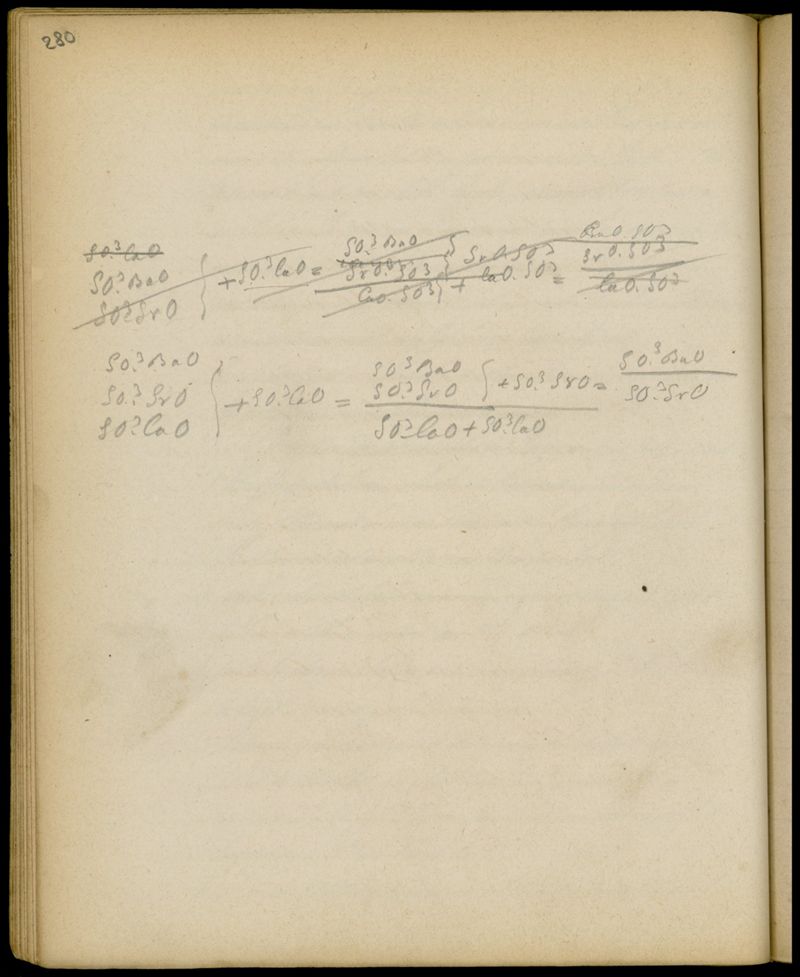 280
SO.³CaO
SO.³BaO
SO.³SrO } + SO.³CaO =
SO.³BaO
SrO.SO³
CaO.SO³ } SrO.SO³ + CaO.SO³ =
BaO.SO³
SrO.SO³
CaO.SO³
SO.³BaO
SO.³SrO
SO.³CaO } + SO.³CaO =
SO³BaO
SO.³SrO } + SO.³SrO =
SO.³CaO + SO.³CaO
SO.³BaO
SO.³SrO